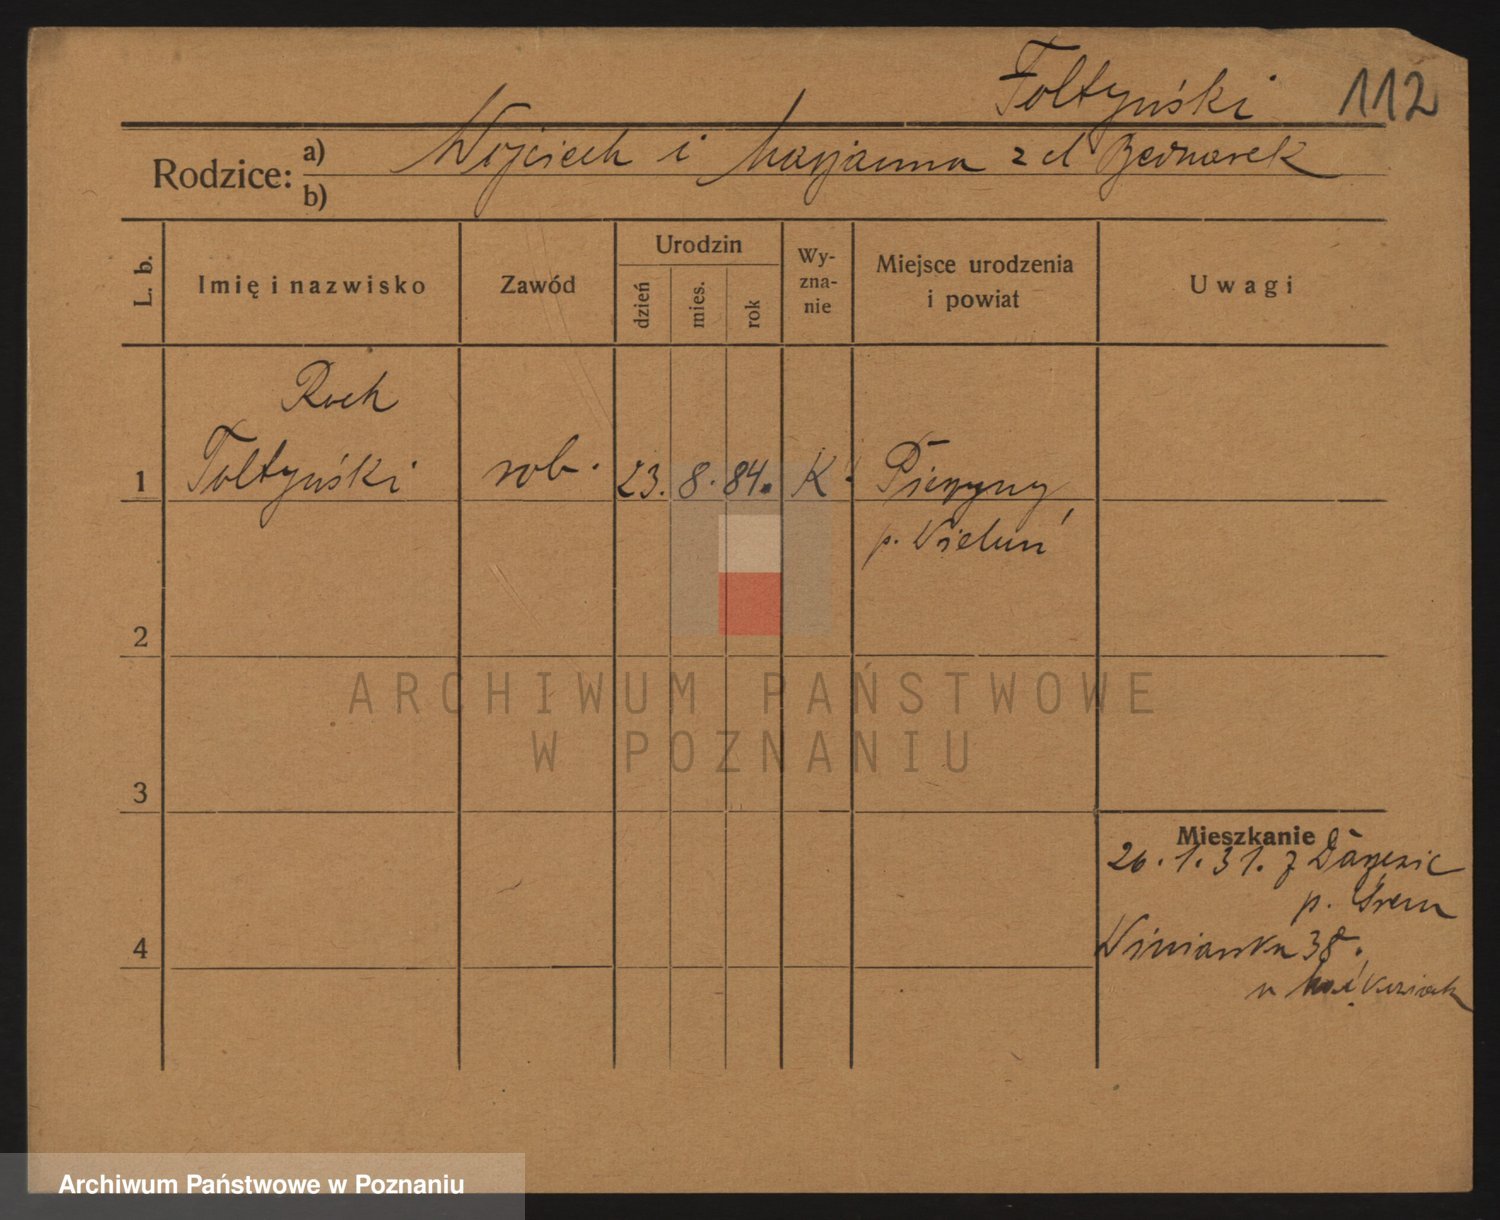 Foltyński 112
Rodzice: a) Wojciech i Marjanna z d Bednarek
b)
L. b. Imię i nazwisko Zawód Urodzin dzień mies. rok Wyznanie Miejsce urodzenia i powiat Uwagi
Roch
1 Foltyński rob. 23. 8. 84. K.
p. Wieluń
2
ARCHIWUM PAŃSTWOWE
W POZNANIU
3
Mieszkanie
26. 1. 31. z
p. Śrem
4 Winiarska 38.
u
Archiwum Państwowe w Poznaniu